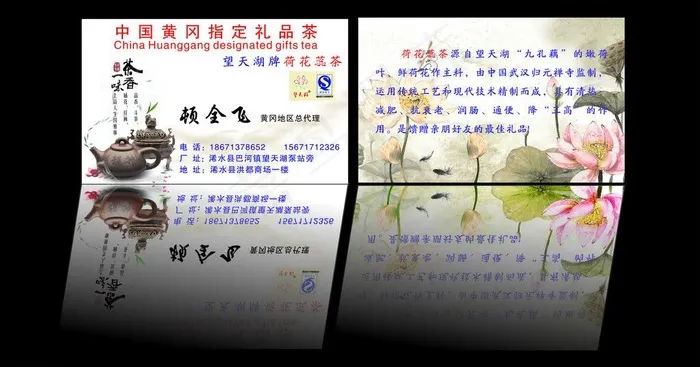 中国黄冈指定礼品茶
China Huanggang designated gifts tea
望天湖牌荷花蕊茶
茶香一味
望天湖
顿全飞 黄冈地区总代理
电 话：18671378652 15671712326
厂 址：浠水县巴河镇望天湖泵站旁
地 址：浠水县洪都商场一楼
荷花蕊茶源自望天湖“九孔藕”的嫩荷
叶、鲜荷花作主料，由中国武汉归元禅寺监制，
运用传统工艺和现代技术精制而成，具有清热
减肥、抗衰老、润肠、通便、降“三高”的作
用。是馈赠亲朋好友的最佳礼品！